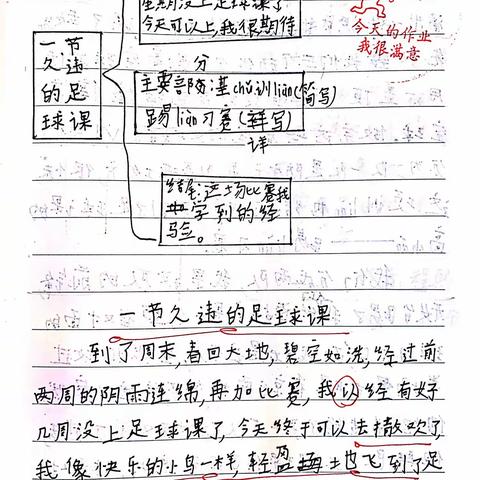 星期没上足球课了
今天可以上,我很期待
今天的作业
我很满意
一节
久违
的足
球课
分
主要部:基chǔ训liàn(简写)
踢liàn习赛(详写)
详
结尾:这场比赛我
学到的经
验。
一节久违的足球课
到了周末,春回大地,碧空如洗,经过前
两周的阴雨连绵,再加比赛,我以经有好
几周没上足球课了,今天终于可以去撒欢了
我像快乐的小鸟一样,轻盈地飞到了足